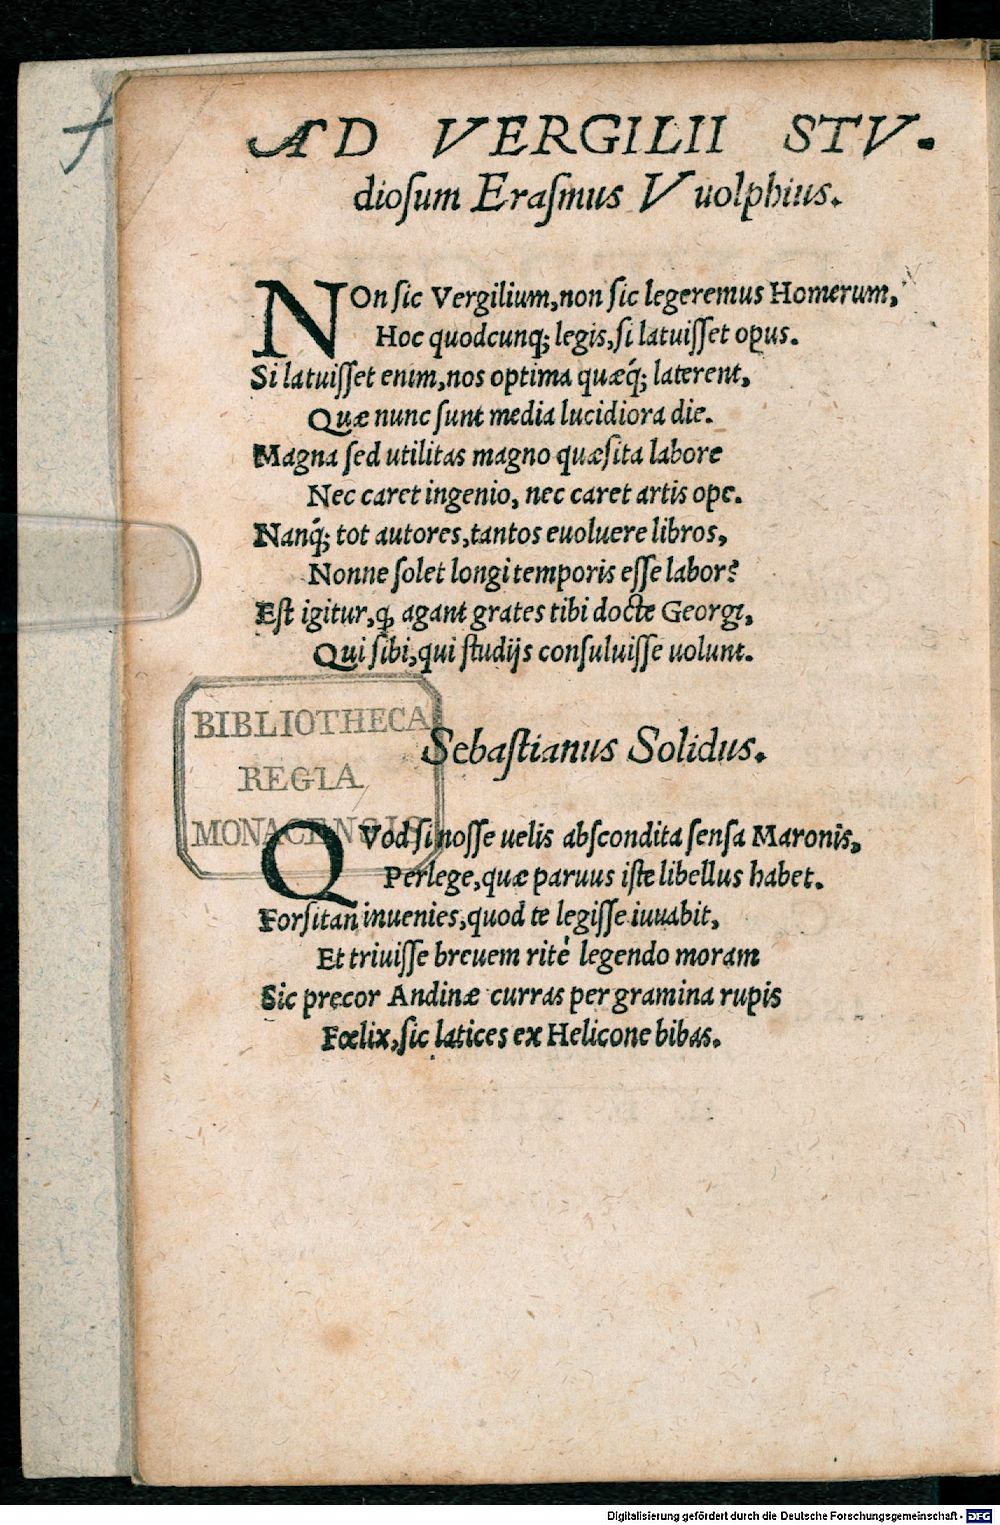 AD VERGILII STV.
dioſum Eraſmus Vuolphius.
NOn ſic Vergilium, non ſic legeremus Homerum,
Hoc quodcunq; legis, ſi latuiſſet opus.
Si latuiſſet enim, nos optima quæq́; laterent,
Quæ nunc ſunt media lucidiora die.
Magna ſed utilitas magno quæſita labore
Nec caret ingenio, nec caret artis ope.
Nanq́; tot autores, tantos euoluere libros,
Nonne ſolet longi temporis eſſe labor?
Eſt igitur, ꝙ agant grates tibi docte Georgi,
Qui ſibi, qui ſtudijs conſuluiſſe uolunt.
BIBLIOTHECA
REGIA
MONACENSIS
Sebaſtianus Solidus.
QVod ſi noſſe uelis abſcondita ſenſa Maronis,
Perlege, quæ paruus iſte libellus habet.
Forſitan inuenies, quod te legiſſe iuuabit,
Et triuiſſe breuem ritè legendo moram
Sic precor Andinæ curras per gramina rupis
Fœlix, ſic latices ex Helicone bibas.
Digitalisierung gefördert durch die Deutsche Forschungsgemeinschaft - DFG